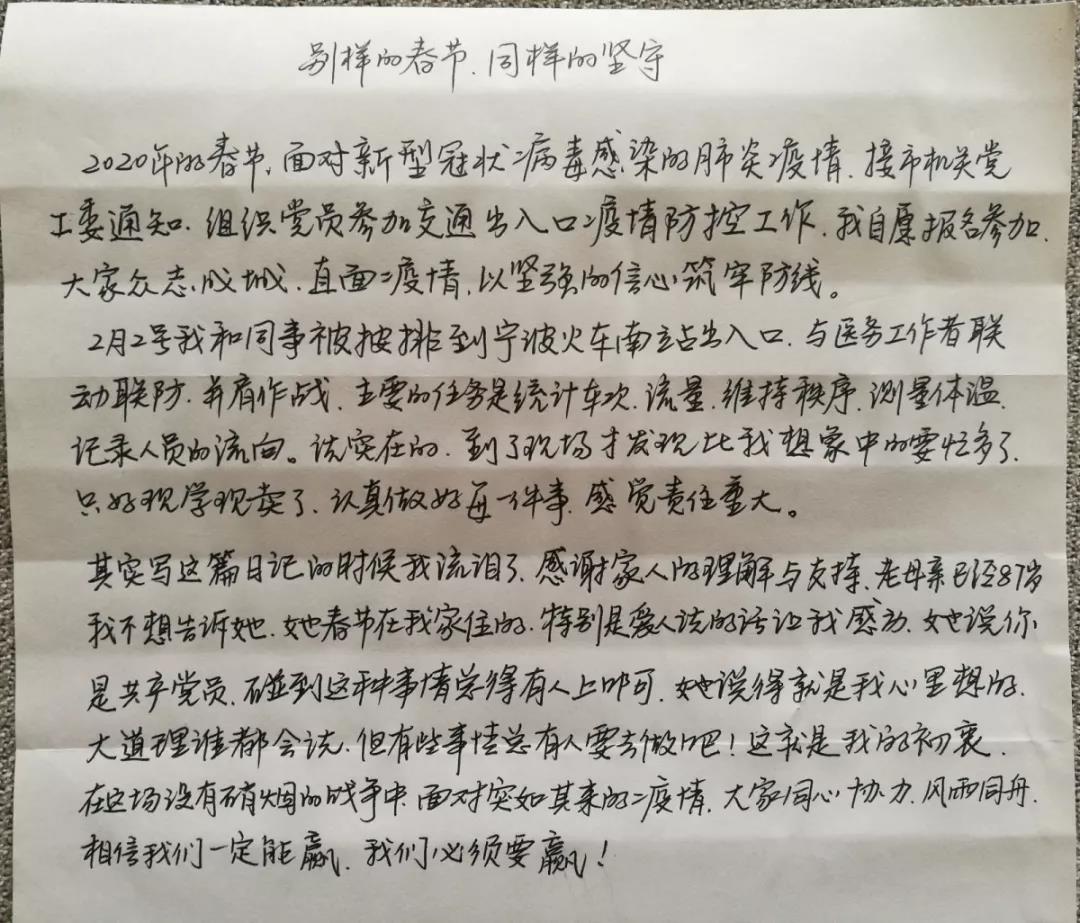 别样的春节、同样的坚守
2020年的春节、面对新型冠状病毒感染的肺炎疫情、接市机关党
工委通知、组织党员参加交通出入口疫情防控工作、我自愿报名参加、
大家众志成城、直面疫情、以坚强的信心筑牢防线。
2月2号我和同事被按排到宁波火车南站出入口、与医务工作者联
动联防、并肩作战、主要的任务是统计车次、流量、维持秩序、测量体温、
记录人员的流向。说实在的、到了现场才发现比我想象中的要忙多了、
只好现学现卖了、认真做好每一件事、感觉责任重大。
其实写这篇日记的时候我流泪了、感谢家人的理解与支持、老母亲已经87岁
我不想告诉她、她春节在我家住的、特别是爱人说的话让我感动、她说你
是共产党员、碰到这种事情总得有人上吖可、她说得就是我心里想的、
大道理谁都会说、但有些事情总有人要去做吧！这就是我的初衷、
在这场没有硝烟的战争中、面对突如其来的疫情、大家同心协力、风雨同舟、
相信我们一定能赢、我们必须要赢！